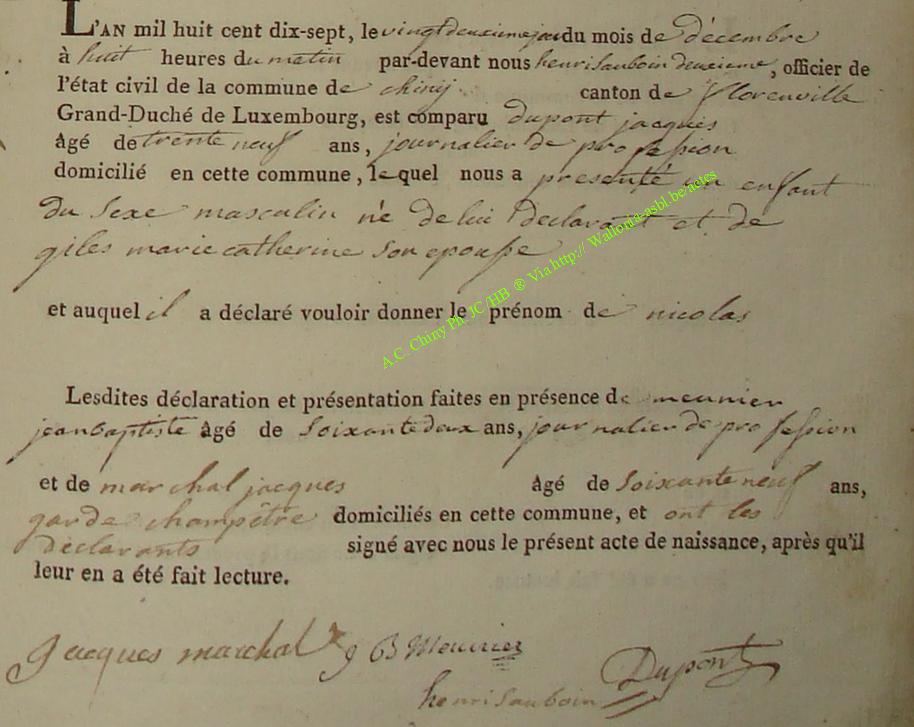 L'AN mil huit cent dix-sept, le vingt deuxieme jour du mois de décembre
à huit heures du matin par-devant nous henri sauboin deuxieme, officier de
l'état civil de la commune de chiny canton de florenville
Grand-Duché de Luxembourg, est comparu dupont jacques
âgé de trente neuf ans, journalier de profession
domicilié en cette commune, lequel nous a presenté un enfant
du sexe masculin né de lui declarant et de
giles marie catherine son epousse
et auquel il a déclaré vouloir donner le prénom de nicolas
Lesdites déclaration et présentation faites en présence de meunier
jean baptiste âgé de soixante deux ans, journalier de profession
et de marchal jacques âgé de soixante neuf ans,
garde champêtre domiciliés en cette commune, et ont les
declarants signé avec nous le présent acte de naissance, après qu'il
leur en a été fait lecture.
Jacques marchal J B Meunier
henri sauboin Dupont
A.C. Chiny Ph. JC /HB ® Via http:// Wallonia-asbl.be/actes